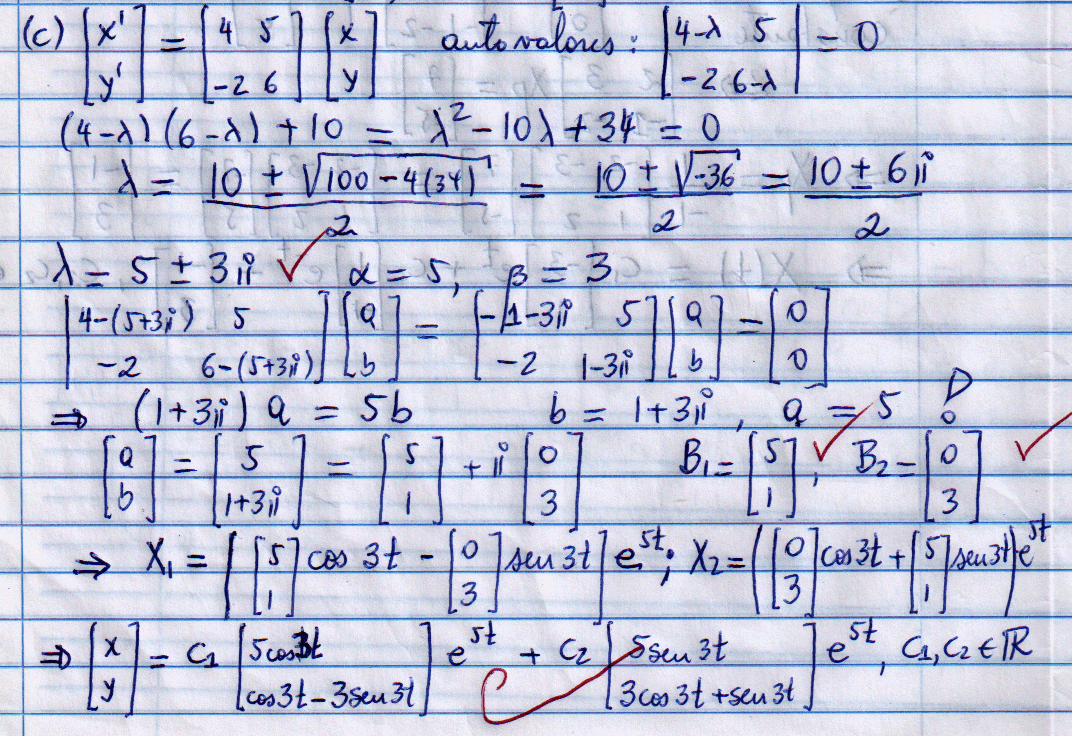 (c) [x' y'] = [4 5; -2 6] [x y] autovalores: |4-λ 5; -2 6-λ| = 0
(4-λ)(6-λ) + 10 = λ² - 10λ + 34 = 0
λ = (10 ± √(100 - 4(34)))/2 = (10 ± √-36)/2 = (10 ± 6i)/2
λ = 5 ± 3i ✓ α = 5, β = 3
[4-(5+3i) 5; -2 6-(5+3i)] [a b] = [-1-3i 5; -2 1-3i] [a b] = [0 0]
⇒ (1+3i) a = 5b b = 1+3i, a = 5 !
[a b] = [5; 1+3i] = [5; 1] + i [0; 3] B₁ = [5; 1] ✓, B₂ = [0; 3] ✓
⇒ X₁ = ([5; 1] cos 3t - [0; 3] sen 3t] e^5t; X₂ = ([0; 3] cos 3t + [5; 1] sen 3t) e^5t
⇒ [x y] = C₁ [5cos 3t; cos 3t - 3sen 3t] e^5t + C₂ [5sen 3t; 3cos 3t + sen 3t] e^5t, C₁, C₂ ∈ ℝ